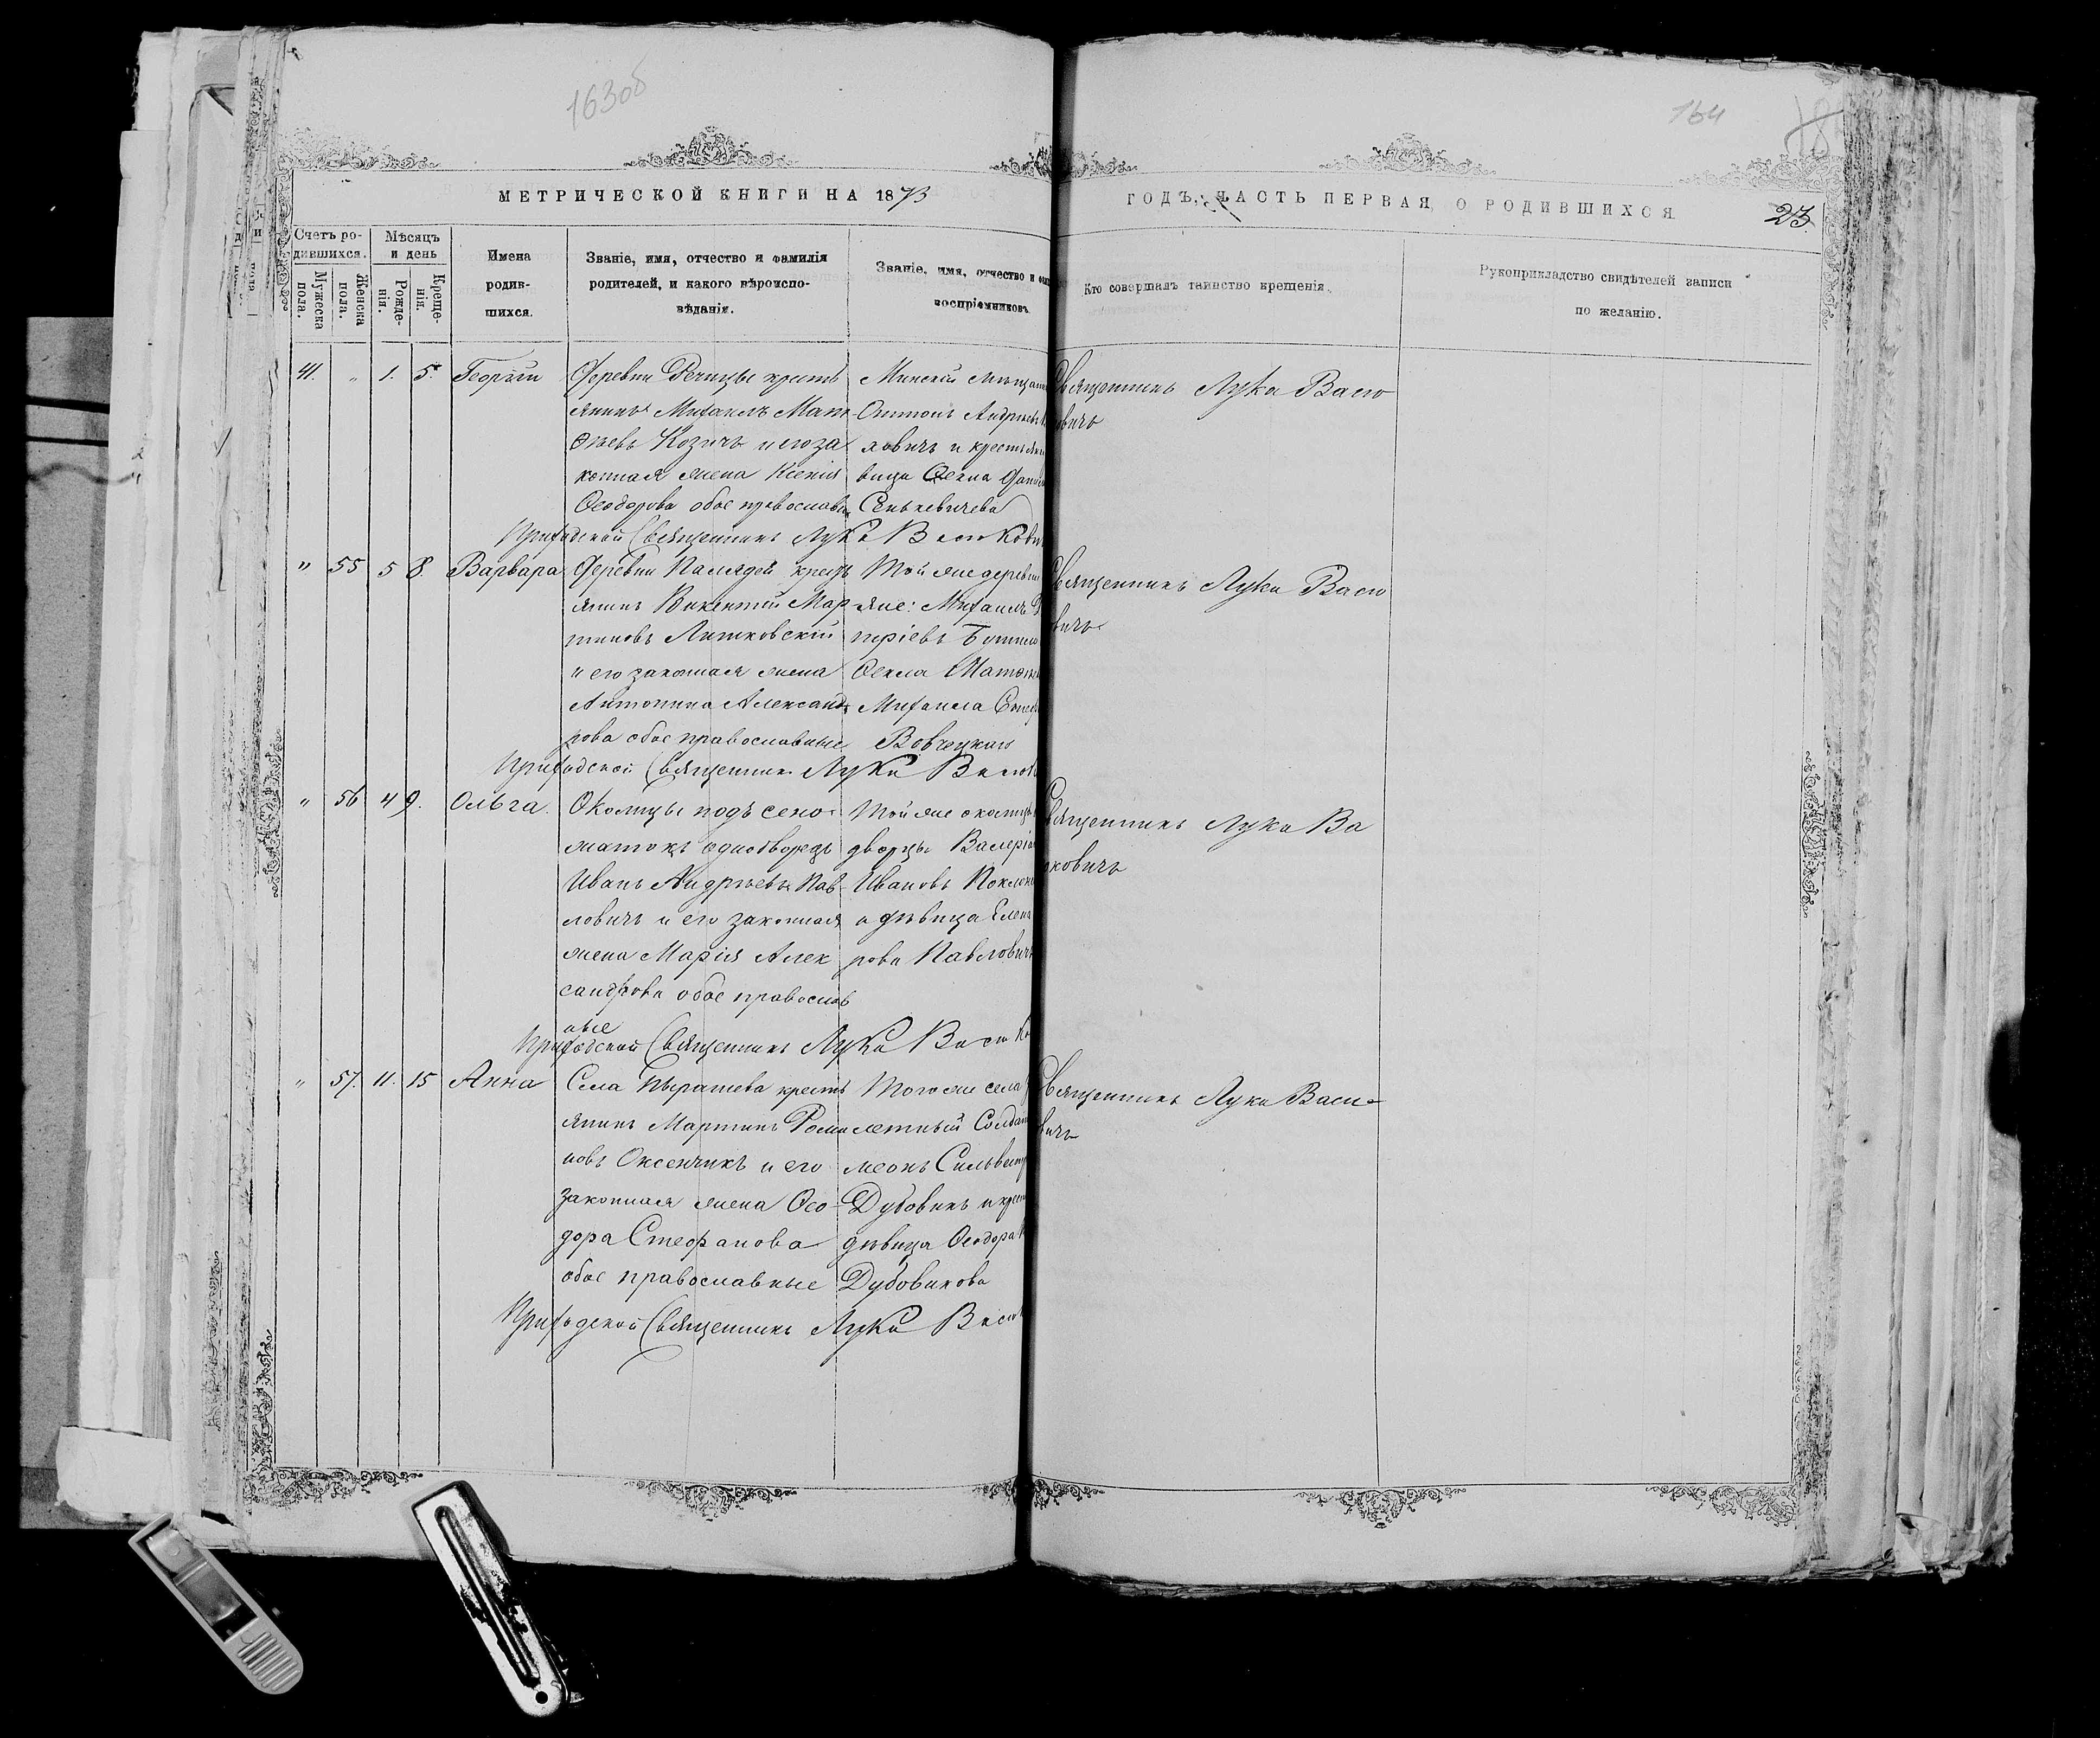 163об
164
МЕТРИЧЕСКОЙ КНИГИ НА 1873
ГОДЪ, ЧАСТЬ ПЕРВАЯ, О РОДИВШИХСЯ
23.
Счетъ родившихся.
Мужеска пола.
Женска пола.
Мѣсяцъ и день
Рожденія.
Крещенія.
Имена родившихся.
Званіе, имя, отчество и фамилія родителей, и какого вѣроисповѣданія.
Званіе, имя, отчество и
воспріемниковъ
Кто совершалъ таинство крещенія.
Рукоприкладство свидѣтелей записи по желанію.
41. " 1. 5. Георгій
Деревни Речицы кресть
янинъ Михаилъ Мат
ѳѣевъ Козичъ и его за
конная жена Ксенія
Ѳеодорова обое православн
Минскій мѣщан
Антонъ Андреевъ
ловичъ и крестьян
вица Ѳекла
Сенькевичева
Священникъ Лука Васю
ковичъ
Приходской Священникъ Лука Васюкови
" 55 5 8. Варвара
Деревни кресть
янинъ Викентій Мар
тиновъ Литковскій
и его законная жена
Антонина Александ
рова обое православные
Той же деревни
яне: Михаилъ
тріевъ
Ѳекла
Михаила
Священникъ Лука Васю
вичъ
Приходской Священникъ Лука Васюк
" 56 4 9. Ольга
Околицы подъ сено
жатокъ однодворецъ
Иванъ Андреевъ Пав
ловичъ и его законная
жена Марія Алек
сандрова обое православ
ные
Той же околицы
дворцы Валеріа
Ивановъ
и дѣвица Елена
рова Павлович
Священникъ Лука Ва
юковичъ
Приходской Священникъ Лука Васюко
" 57. 11. 15 Анна
Села Пырашева кресть
янинъ Мартинъ Рома
новъ Оксенчикъ и его
законная жена Ѳео
дора Стефанова
обое православные
Того же села
летный Солдат
меонъ Сильвест
Дубовикъ и крест
дѣвица Ѳеодора
Дубовикова
Священникъ Лука Васю
вичъ
Приходской Священникъ Лука Васюк